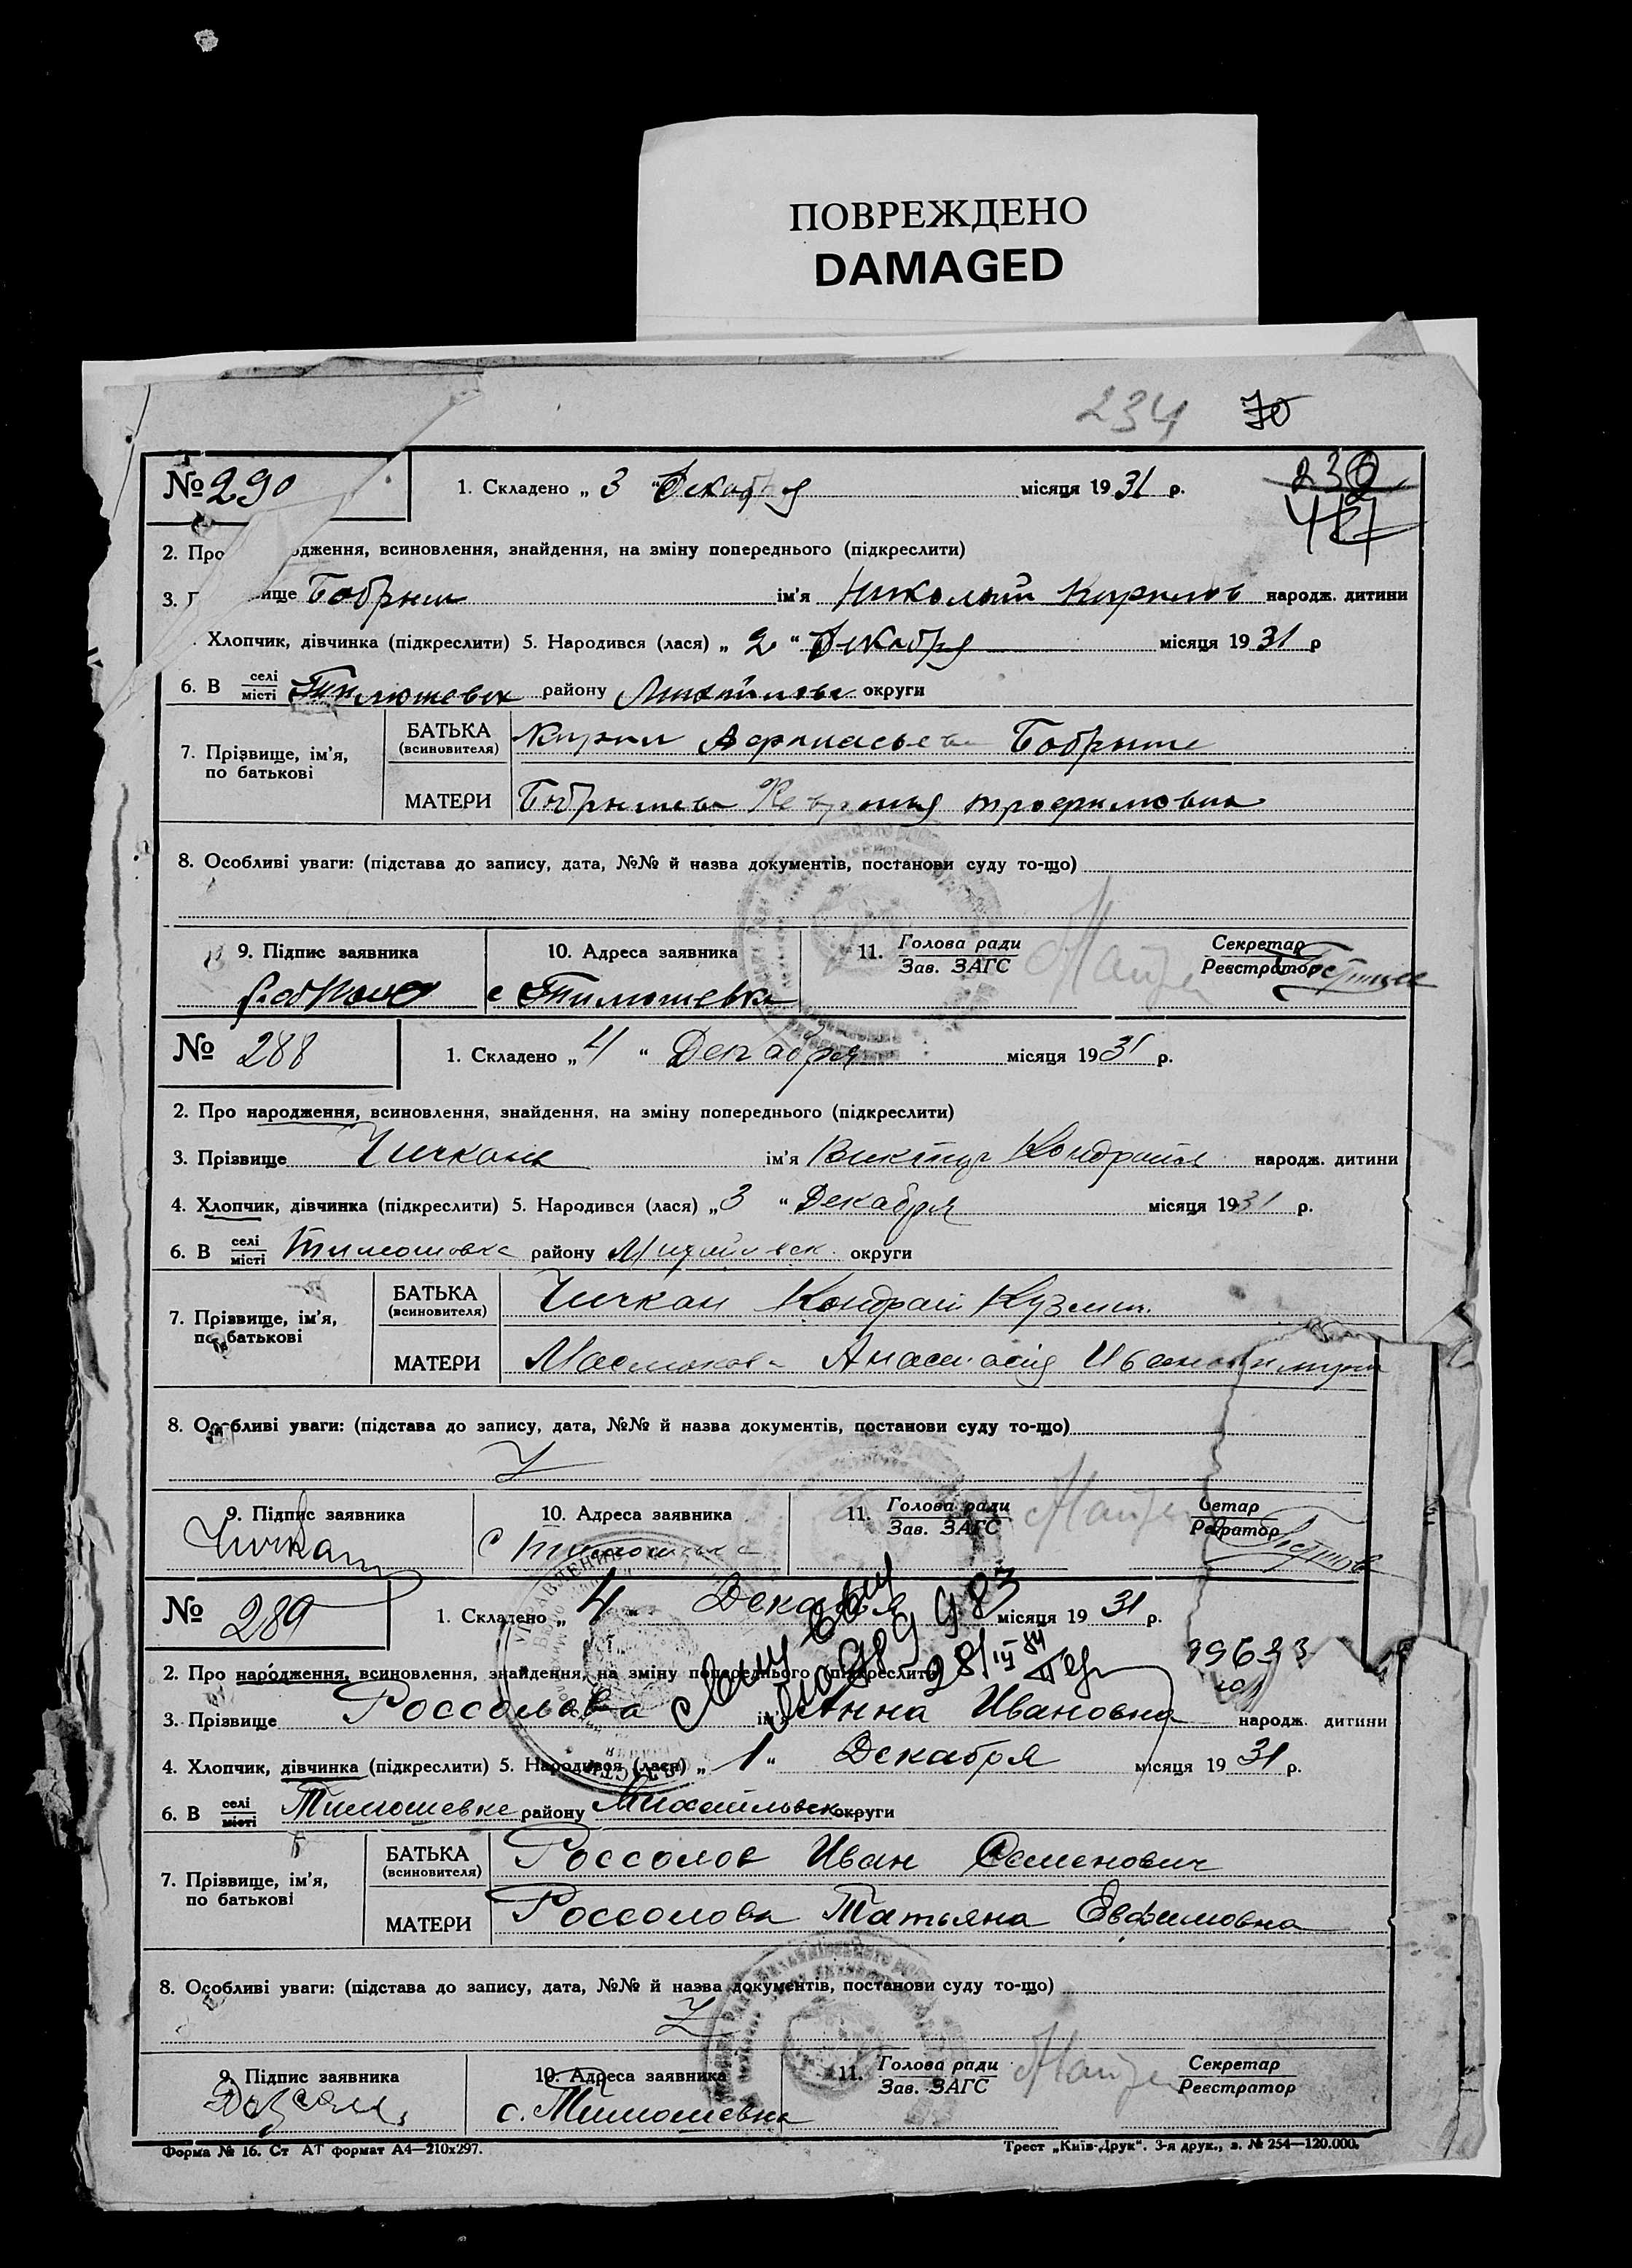 ПОВРЕЖДЕНО
DAMAGED
234 70
232
№ 290 1. Складено „ 3 “ Декабря місяця 1931 р.
2. Про одження, всиновлення, знайдення, на зміну попереднього (підкреслити)
3. П ище Бобрыш ім'я Николай Кирилов народж. дитини
Хлопчик, дівчинка (підкреслити) 5. Народився (лася) „ 2 “ Декабря місяця 1931 р
6. В селі місті району округи
7. Прізвище, ім'я, по батькові
БАТЬКА (всиновителя) Кирил Афанасьев Бобрыш
МАТЕРИ Бобрышева трофимовна
8. Особливі уваги: (підстава до запису, дата, №№ й назва документів, постанови суду то-що)
9. Підпис заявника 10. Адреса заявника 11. Голова ради Зав. ЗАГС Секретар Реєстратор
с Тимошевка
№ 288 1. Складено „ 4 “ Декабря місяця 1931 р.
2. Про народження, всиновлення, знайдення, на зміну попереднього (підкреслити)
3. Прізвище Чичкань ім'я Виктор Кондратов народж. дитини
4. Хлопчик, дівчинка (підкреслити) 5. Народився (лася) „ 3 “ Декабря місяця 1931 р.
6. В селі місті Тимошовка району округи
7. Прізвище, ім'я, по батькові
БАТЬКА (всиновителя) Чичкан Кондрат Кузмич
МАТЕРИ Анастасия
8. Особливі уваги: (підстава до запису, дата, №№ й назва документів, постанови суду то-що)
Z
9. Підпис заявника 10. Адреса заявника 11. Голова ради Зав. ЗАГС етар Ре ратор
Чичкан с Тимошовка
№ 289 1. Складено „ 4 “ Декабря місяця 1931 р.
2. Про народження, всиновлення, знайдення, на зміну попереднього (підкреслити)
3. Прізвище Россолова ім'я Анна Ивановна народж. дитини
4. Хлопчик, дівчинка (підкреслити) 5. Народився (лася) „ 1 “ Декабря місяця 1931 р.
6. В селі місті Тимошевке району Михайловск округи
7. Прізвище, ім'я, по батькові
БАТЬКА (всиновителя) Россолов Иван Семенович
МАТЕРИ Россолова Татьяна Евфимовна
8. Особливі уваги: (підстава до запису, дата, №№ й назва документів, постанови суду то-що)
Z
9. Підпис заявника 10. Адреса заявника 11. Голова ради Зав. ЗАГС Секретар Реєстратор
с. Тимошевка
Форма № 16. Ст АТ формат А4—210х297. Трест „Київ-Друк“. 3-я друк., з. № 254—120.000.